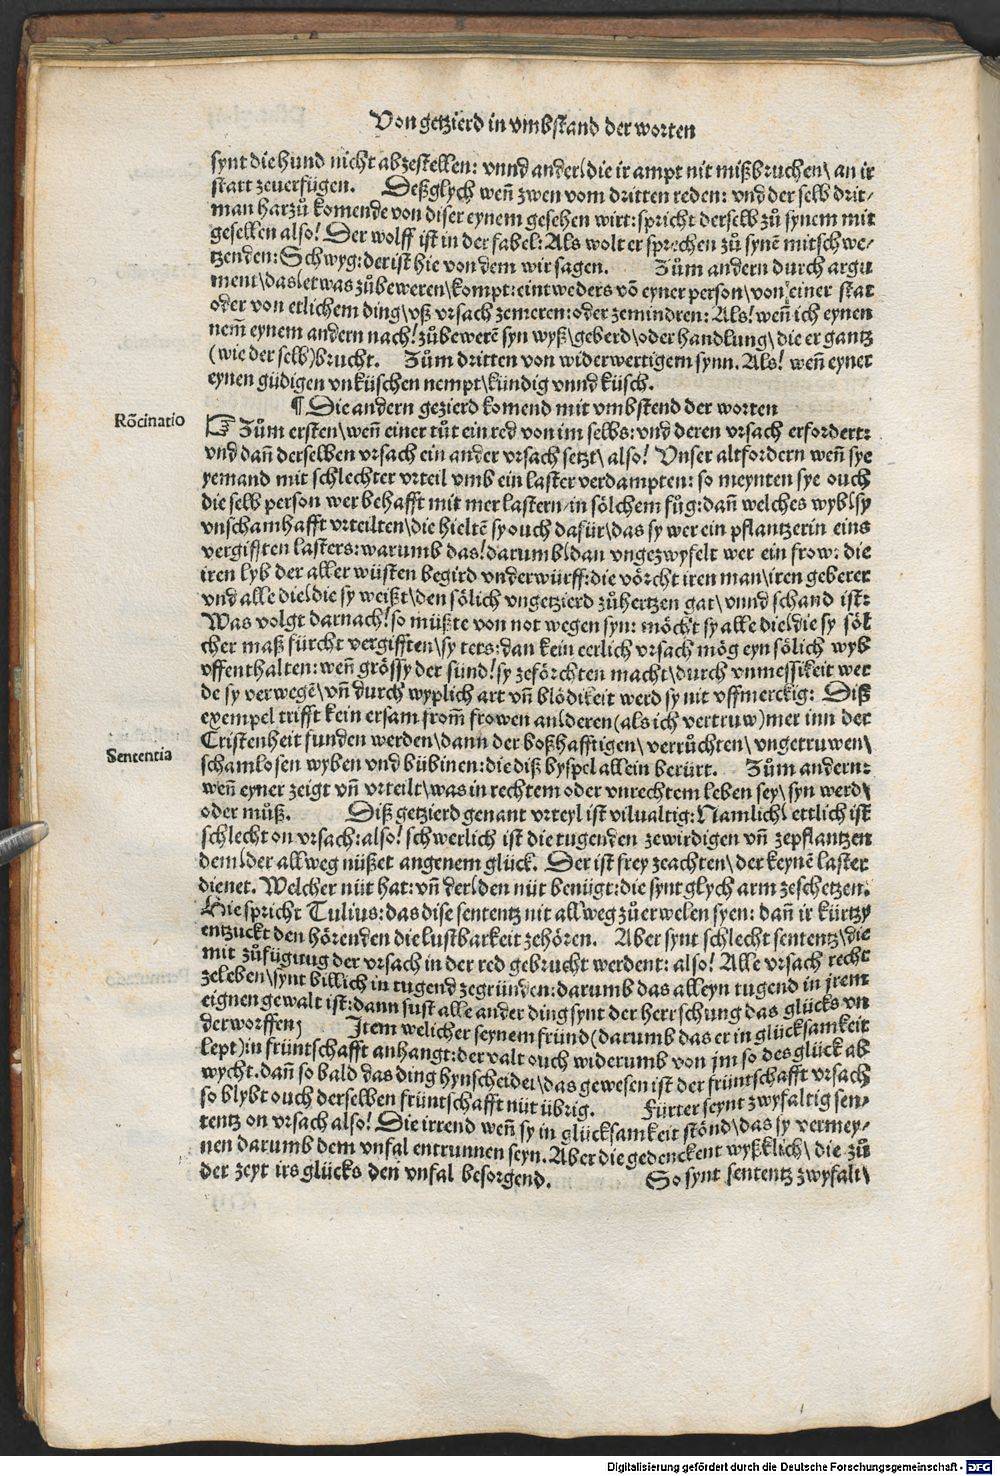 Von getzierd in vmbstand der worten
synt die hund nicht abzestellen: vnnd ander/die ir ampt nit mißbruchen\ an ir
statt zeuerfügen. Deßglych weñ zwen vom dritten reden: vnd der selb drit-
man harzů komende von diser eynem gesehen wirt: spricht derselb zů synem mit
gesellen also! Der wolff ist in der fabel: Als wolt er sprechen zů synẽ mitschwe-
tzenden: Schwyg: der ist hie von dem wir sagen. Zům andern durch argu
ment\das/etwas zůbeweren/kompt: eintweders võ eyner person\von einer stat
oder von etlichem ding\vß vrsach zemeren: oder zemindren: Als! weñ ich eynen
nem̃ eynem andern nach! zůbewerẽ syn wyß\geberd\oder handlung\die er gantz
(wie der selb) brucht. Zům dritten von widerwertigem synn. Als! weñ eyner
eynen güdigen vnküschen nempt\kündig vnnd küsch.
¶ Die andern gezierd komend mit vmbstend der worten
Rõcinatio
☞ Zům ersten\weñ einer tůt ein red von im selbs: vnd deren vrsach erfordert:
vnd dañ derselben vrsach ein ander vrsach setzt\ also! Vnser altfordern weñ sye
yemand mit schlechter vrteil vmb ein laster verdampten: so meynten sye ouch
die selb person wer behafft mit mer lastern/in sölchem fůg: dañ welches wyb/sy
vnschamhafft vrteilten\die hieltẽ sy ouch dafür\das sy wer ein pflantzerin eins
vergifften lasters: warumb das! darumb/dan vngezwyfelt wer ein frow: die
iren lyb der aller wüsten begird vnderwürff: die vörcht iren man\iren geberer
vnd alle die/die sy weißt\den sölich vngetzierd zůhertzen gat\vnnd schand ist:
Was volgt darnach! so müßte von not wegen syn: möcht sy alle die/die sy söl
cher maß fürcht vergifften\sy ters: dan kein eerlich vrsach mög eyn sölich wyb
vffenthalten: weñ grössy der sünd/sy zeförchten macht\durch vnmessikeit wer
de sy verwegẽ\vñ durch wyplich art vñ blödikeit werd sy nit vffmerckig: Diß
exempel trifft kein ersam from̃ frowen an/deren (als ich vertruw) mer inn der
Cristenheit funden werden\dann der boßhafftigen\verrůchten\vngetruwen\
Sententia
schamlosen wyben vnd bübinen: die diß byspel allein berürt. Zům andern:
weñ eyner zeigt vñ vrteilt\was in rechtem oder vnrechtem leben sey\syn werd\
oder müß. Diß getzierd genant vrteyl ist vilualtig: Namlich/ettlich ist
schlecht on vrsach: also! schwerlich ist die tugenden zewirdigen vñ zepflantzen
dem/der allweg nüßet angenem glück. Der ist frey zeachten\der keynẽ laster
dienet. Welcher nüt hat: vñ der/den nüt benügt: die synt glych arm zeschetzen.
Hie spricht Tulius: das dise sententz nit allweg zůerwelen syen: dañ ir kürtzy
entzuckt den hörenden die lustbarkeit zehören. Aber synt schlecht sententz\die
mit zůfügung der vrsach in der red gebrucht werdent: also! Alle vrsach recht
zeleben\synt billich in tugend zegründen: darumb das alleyn tugend in jrem
eignen gewalt ist: dann sust alle ander ding synt der herrschung das glücks vn
derworffen; Item welicher seynem fründ (darumb das er in glücksamkeit
lept) in früntschafft anhangt: der valt ouch widerumb von jm so des glück ab
wycht. dañ so bald das ding hynscheidet\das gewesen ist der früntschafft vrsach
so blybt ouch derselben früntschafft nüt übrig. Fürter seynt zwyfaltig sen-
tentz on vrsach also! Die irrend weñ sy in glücksamkeit stönd\das sy vermey-
nen darumb dem vnfal entrunnen seyn. Aber die gedenckent wyßklich\die zů
der zeyt irs glücks den vnfal besorgend. So synt sententz zwyfalt\
Digitalisierung gefördert durch die Deutsche Forschungsgemeinschaft - DFG